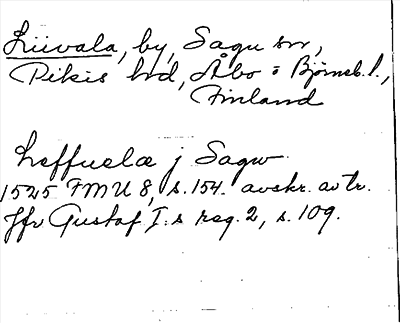 Liivala, by, Sagu sn,
Pikis hd, Åbo o Björneb. l.,
Finland
Leffuelæ j Sagw
1525 FMU 8, s. 154. avskr. av tr.
Jfr Gustaf I:s reg. 2, s. 109.